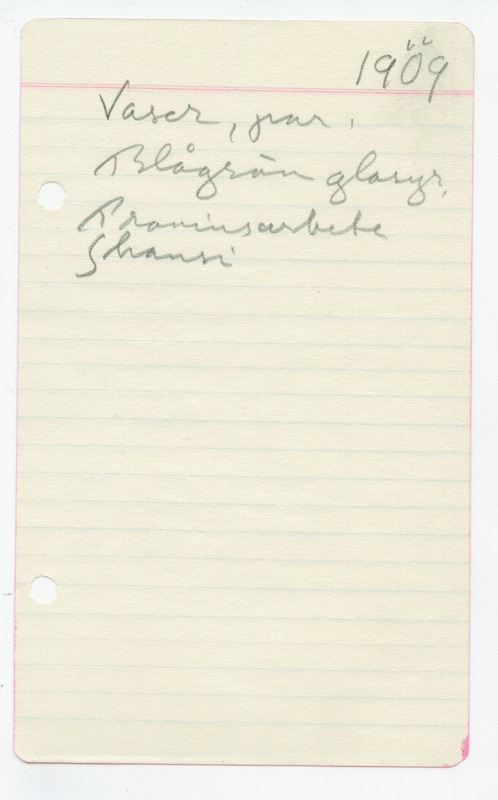 1909
Vaser, par.
Blågrön glasyr,
Provinsarbete
Shansi